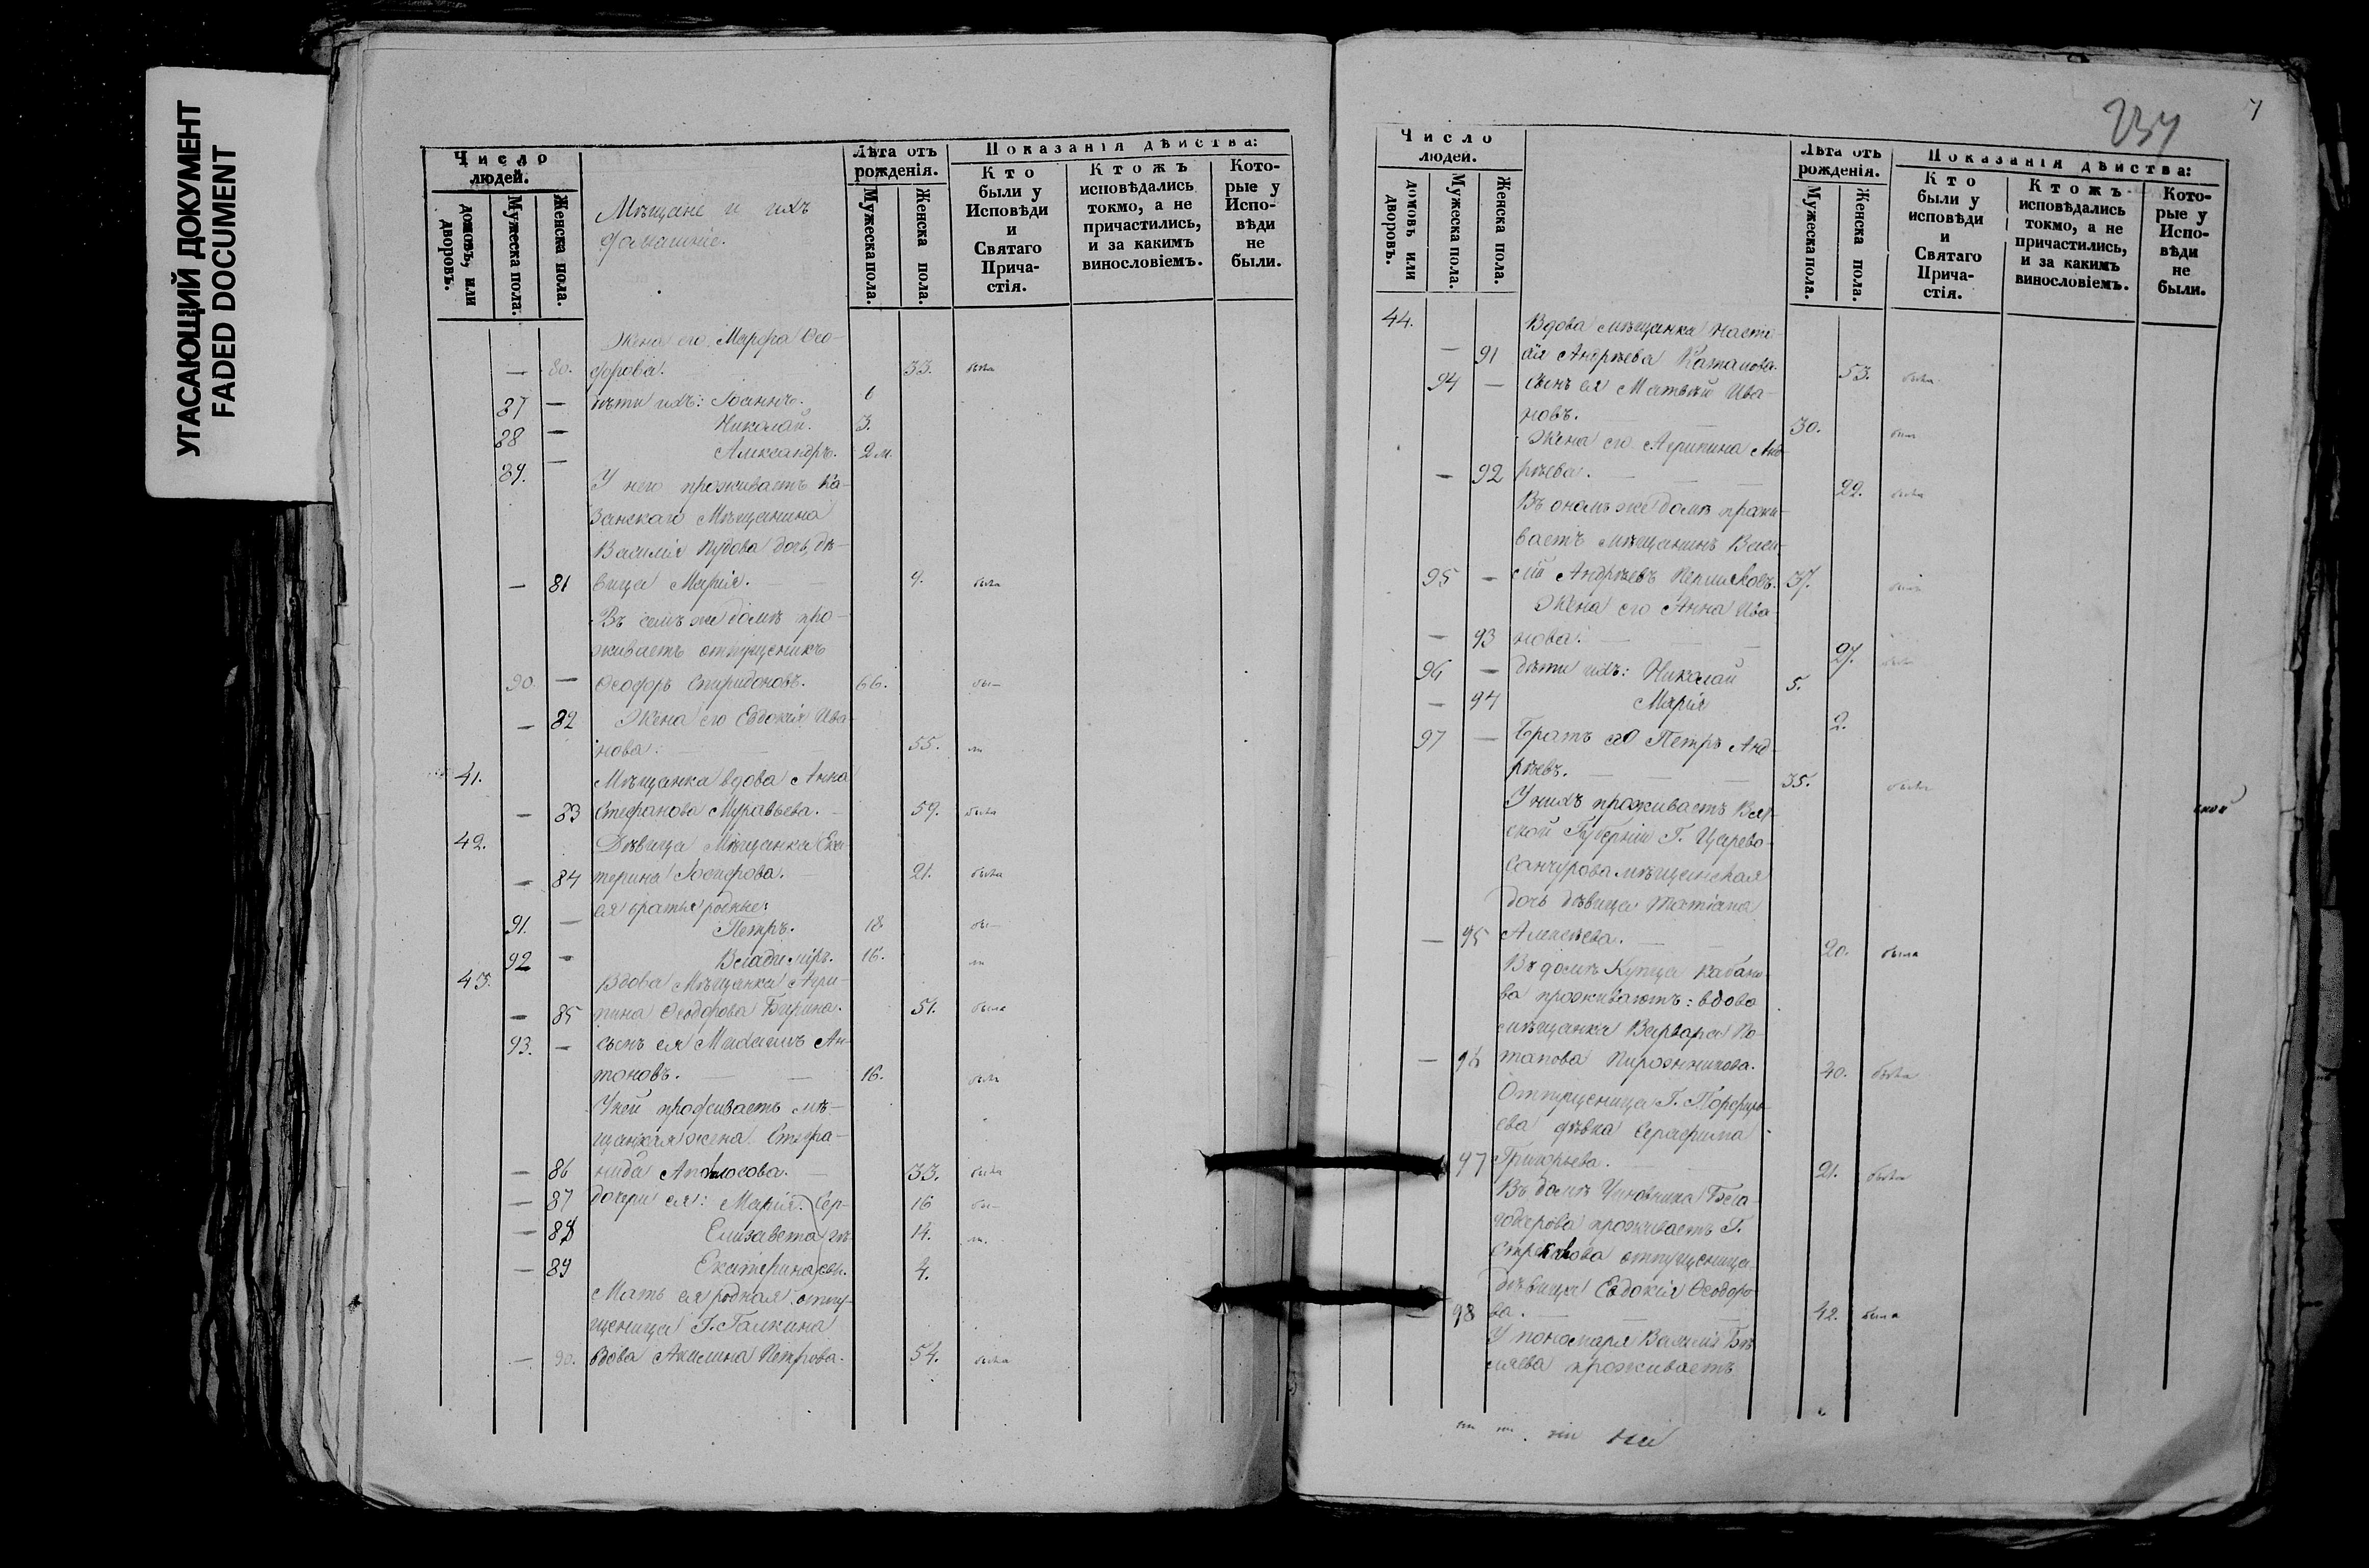 УГАСАЮЩИЙ ДОКУМЕНТ
FADED DOCUMENT
Число людей.
домовъ, или дворовъ.
Мужеска пола.
Женска пола.
Мѣщане и ихъ
домашніе.
Лѣта отъ рожденія.
Мужеска пола.
Женска пола.
Показанія дѣйства:
Кто были у Исповѣди и Святаго Прича-стія.
Ктожъ исповѣдались токмо, а не причастились, и за какимъ винословіемъ.
Кото-рые у Испо-вѣди не были.
Жена его Марфа Ѳео-
— 80. дорова. 33. была
87 — дѣти ихъ: Іоаннъ. 6
88 — Николай. 3.
89. — Александръ. 2 м.
У него проживаетъ Ка-
занскаго Мѣщанина
Василія Пудова дочь, дѣ-
— 81 вица Марія. 9. была
Въ семъ же домѣ про-
живаетъ отпущеникъ
90. — Ѳеодоръ Спиридоновъ. 66. бы—
— 82 Жена его Евдокія Ива-
нова. 55.
41. Мѣщанка вдова Анна
— 83 Стефанова Муравьева. 59. была
42. Дѣвица Мѣщанка Ека-
— 84 терина Іосифова. 21. была
ея братья родные:
91. — Петръ. 18 бы—
92 — Владиміръ. 16.
43. Вдова Мѣщанка Агри-
— 85 пина Ѳеодорова 51. была
93. — сынъ ея Михаилъ Ан-
тоновъ. 16. былъ
У ней проживаетъ мѣ-
щанская жена Стефа-
— 86 нида Аполлосова. 33. была
— 87 дочери ея: Марія. Сер- 16 бы—
— 88 Елизавета гѣ- 14.
— 89 Екатерина евы. 4.
Мать ея родная отпу-
щеница Г. Галкина
— 90. вдова Акилина Петрова. 54. была
237
7
Число людей.
домовъ или дворовъ.
Мужеска пола.
Женска пола.
Лѣта отъ рожденія.
Мужеска пола.
Женска пола.
Показанія дѣйства:
Кто были у исповѣди и Святаго Прича-стія.
Ктожъ исповѣдались токмо, а не причастились, и за какимъ винословіемъ.
Кото-рые у Испо-вѣди не были.
44. Вдова мѣщанка Наста-
— 91 сія Андрѣева 53. была
94 — сынъ ея Матвей Ива-
новъ. 30. былъ
Жена его Агрипина Анд-
— 92 рѣева. 22. была
Въ ономъ же домѣ прожи-
ваетъ мѣщанинъ Васи-
95 — лій Андрѣевъ 37. былъ
Жена его Анна Ива-
— 93 нова. 27. была
96 — дѣти ихъ: Николай 5.
— 94 Марія 2.
97 — Братъ его Петръ Анд-
рѣевъ. 35. былъ
У нихъ проживаетъ Вят-
ской Губерніи Г. Царево-
санчурова мѣщанская
дочь дѣвица Татіана
— 95 Алексѣева. 20. была
Въ домѣ Купца Кабано-
ва проживаютъ: вдова
мѣщанка Варвара По-
— 96 тапова Пирожникова. 40. была
Отпущеница Г. Порфирь-
ева дѣвка Серафима
97 Григорьева. 21. была
Въ домѣ Чиновника
проживаетъ Г.
отпущеница
дѣвица Евдокія Ѳеодоро-
— 98 ва. 42. была
У пономаря Василія Бѣ-
ляева проживаетъ